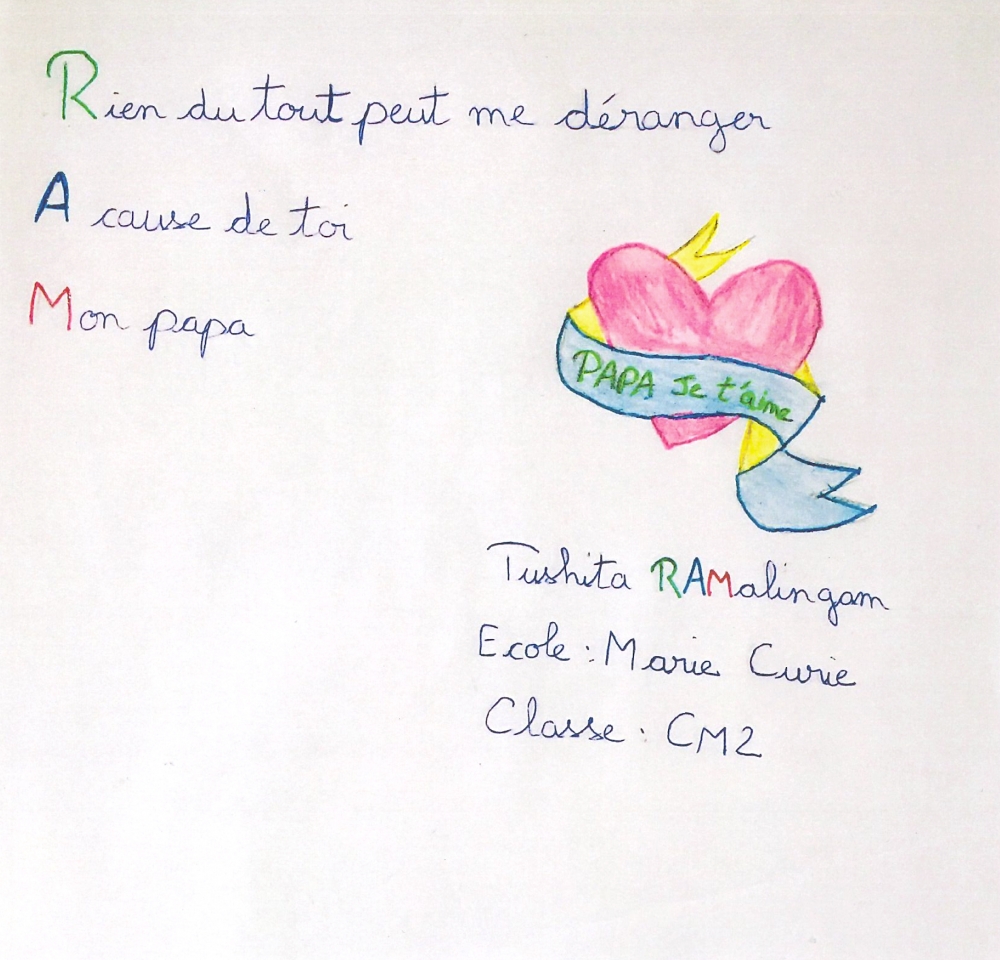 Rien du tout peut me déranger
A cause de toi
Mon papa
PAPA Je t'aime
Tushita RAMalingam
Ecole : Marie Curie
Classe : CM2